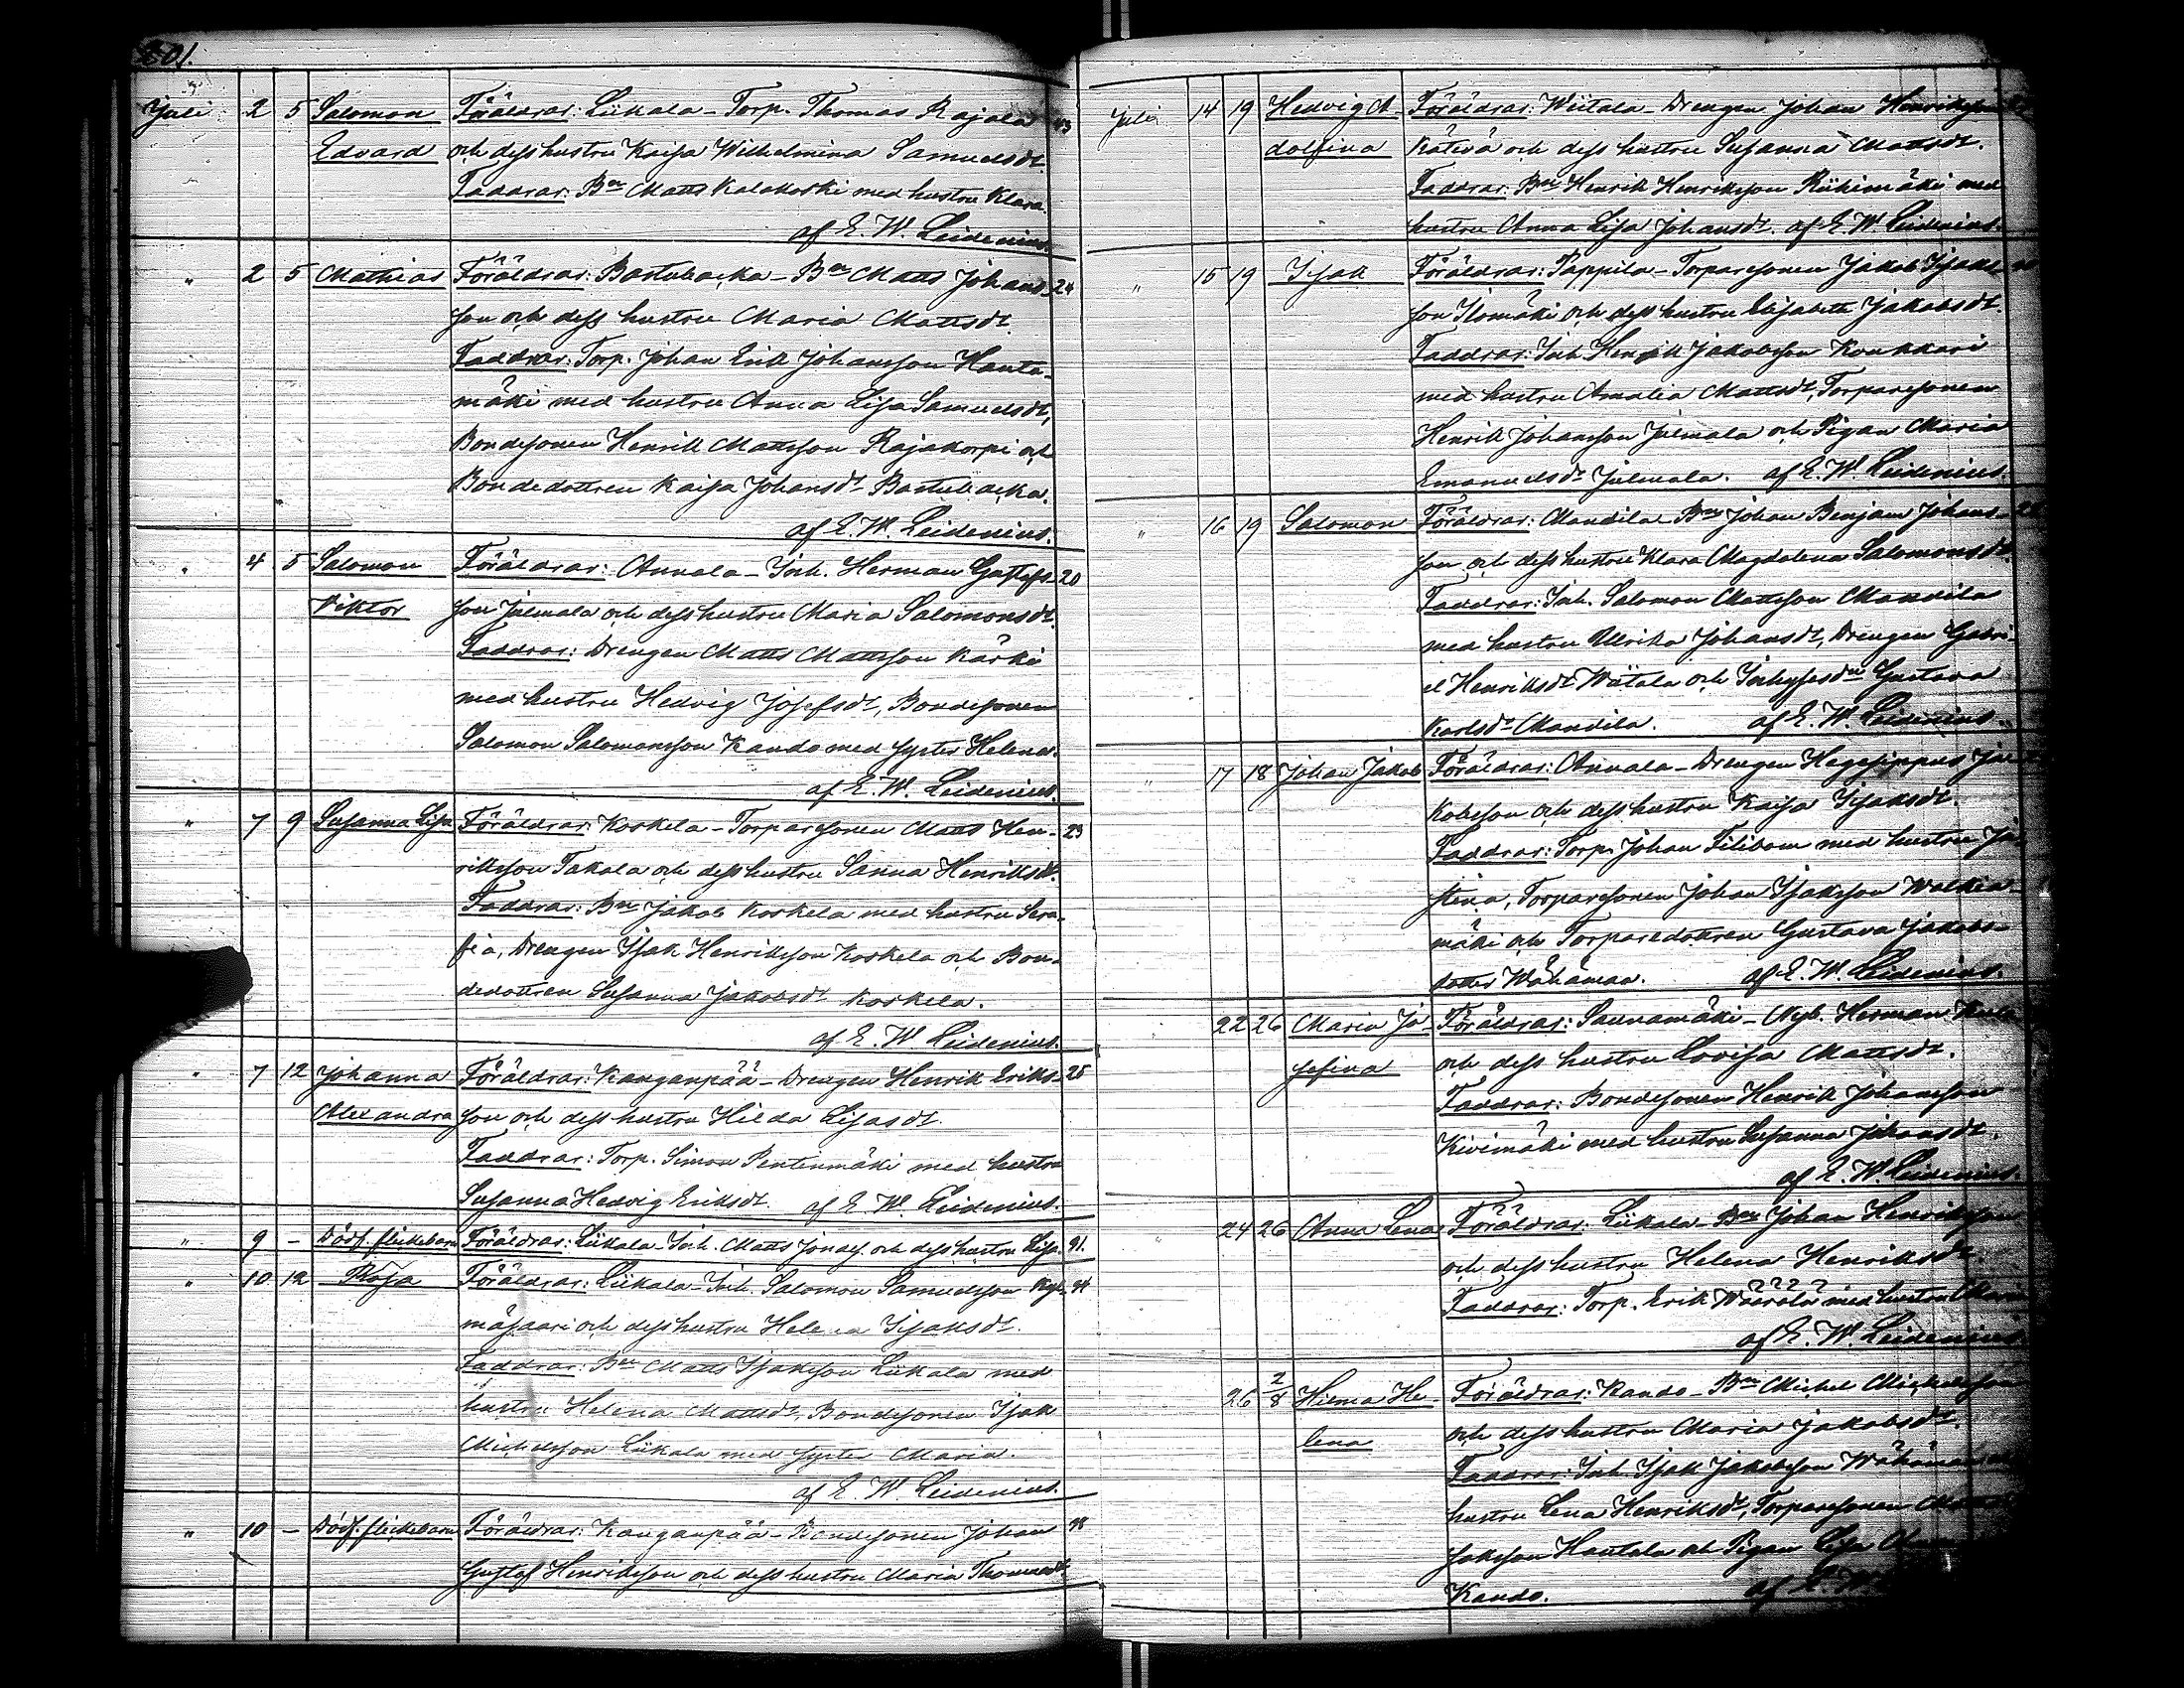 201.
Juli 2 5 Salomon Föräldrar: Liikala - Torp. Thomas Rajala 43
Edvard och dess hustru Kaisa Wilhelmina Samuelsdr.
Faddrar: Bn Matts Kalakoski med hustru Klara.
af E. W. Leidenius.
" 2 5 Mathias Föräldrar: Bastubacka - Bn Matts Johans- 24
son och dess hustru Maria Mattsdr.
Faddrar: Torp. Johan Erik Johansson Hanta-
mäki med hustru Anna Lisa Samuelsdr,
Bondesonen Henrik Mattsson Rajakorpi och
Bondedottren Kaisa Johansdr Bastubacka.
af E. W. Leidenius.
" 4 5 Salomon Föräldrar: Annala - Inh. Herman Gustafs- 20
Viktor son Julmala och dess hustru Maria Salomonsdr.
Faddrar: Drengen Matts Mattsson Kärki
med hustru Hedvig Josefsdr, Bondesonen
Salomon Salomonsson Kando med syster Helena.
af E. W. Leidenius.
" 7 9 Susanna Lisa Föräldrar: Koskela - Torparesonen Matts Hen- 23
riksson Takala och dess hustru Sanna Henriksdr.
Faddrar: Bn Jakob Koskela med hustru Sera-
fia, Drengen Isak Henriksson Koskela och Bon-
dedottren Susanna Jakobsdr Koskela.
af E. W. Leidenius.
" 7 12 Johanna Föräldrar: Kanganpää - Drengen Henrik Eriks- 25
Alexandra son och dess hustru Hilda Lisasdr.
Faddrar: Torp. Simon Pentinmäki med hustru
Susanna Hedvig Eriksdr. af E. W. Leidenius.
" 9 - Dödf. flickebarn Föräldrar: Liikala - Inh. Matts Jonass. och dess hustru Lisa. 91.
" 10 12 Rosa Föräldrar: Liikala - Inh. Salomon Samuelsson 94
och dess hustru Helena Isaksdr.
Faddrar: Bn Matts Isaksson Liikala med
hustru Helena Mattsdr, Bondesonen Isak
Michelsson Liikala med syster Maria.
af E. W. Leidenius.
" 10 - Dödf. flickebarn Föräldrar: Kanganpää - Bondesonen Johan 98
Gustaf Henriksson och dess hustru Maria Thomasdr
Juli 14 19 Hedvig A- Föräldrar: Wiitala - Drengen Johan Henriksson
dolfina Kätevä och dess hustru Susanna Mattsdr.
Faddrar: Bn Henrik Henriksson Riihimäki med
hustru Anna Lisa Johansdr. af E. W. Leidenius.
" 15 19 Isak Föräldrar: Pappila - Torparesonen Jakob Isaks-
son Ilomäki och dess hustru Elisabeta Jakobsdr.
Faddrar: Inh. Henrik Jakobsson Koukkari
med hustru Amalia Mattsdr, Torparesonen
Henrik Johansson Julmala och Pigan Maria
Emanuelsdr Julmala. af E. W. Leidenius.
" 16 19 Salomon Föräldrar: Mandila - Bn Johan Benjam Johans-
son och dess hustru Klara Magdalena Salomonsdr.
Faddrar: Inh. Salomon Mattsson Mandila
med hustru Ulrika Johansdr, Drengen Gabri-
el Henriksdr Wiitala och Inhysesdn Gustava
Karlsdr Mandila. af E. W. Leidenius.
" 17 18 Johan Jakob Föräldrar: Annala - Drengen Hegesippus Ja-
kobsson och dess hustru Kaisa Isaksdr.
Faddrar: Torp. Johan Filibom med hustru Ju-
stina, Torparesonen Johan Isaksson Walkia-
mäki och Torparedottren Gustava Jakobs-
dotter Wähämaa. af E. W. Leidenius.
22 26 Maria Jo- Föräldrar: Saunamäki - Nyb. Herman
sefina och dess hustru Lovisa Mattsdr.
Faddrar: Bondesonen Henrik Johansson
Kivimäki med hustru Susanna Johansdr.
af E. W. Leidenius.
24 26 Anna Lena Föräldrar: Liikala - Bn Johan Henriksson
och dess hustru Helena Henriksdr.
Faddrar: Torp. Erik Määrälä med hustru Maria
af E. W. Leidenius.
26 2/8 Hilma He- Föräldrar: Kando - Bn Michel Michelsson
lena och dess hustru Maria Jakobsdr.
Faddrar: Inh. Isak Jakobsson
hustru Lena Henriksdr, Torparesonen
Isaksson Hautala och Pigan Lisa
Kando. af E. W.